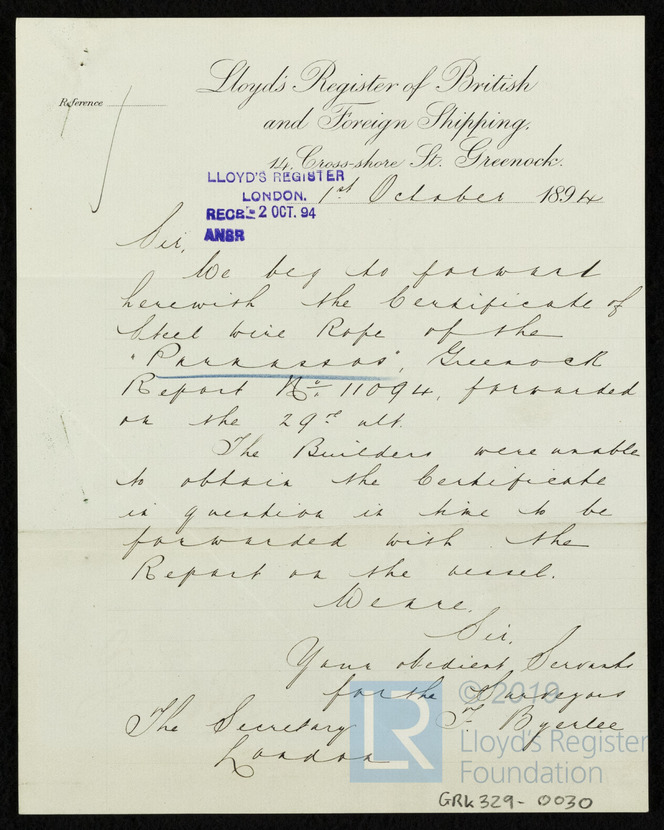 Lloyd's Register of British
and Foreign Shipping.
Reference
14, Cross-shore St. Greenock.
LLOYD'S REGISTER
LONDON.
RECD 2 OCT. 94
ANSR
1st October 1894
Sir,
We beg to forward
herewith the Certificate of
Steel Wire Rope of the
"Parnassos", Greenock
Report No. 11094, forwarded
on the 29th ult.
The Builders were unable
to obtain the Certificate
in question in time to be
forwarded with the
Report on the vessel.
We are,
Sir,
Your obedient Servants
for the Surveyors
F. Byerlee
The Secretary
London
© 2019
LR
Lloyd's Register
Foundation
GRK329-0030